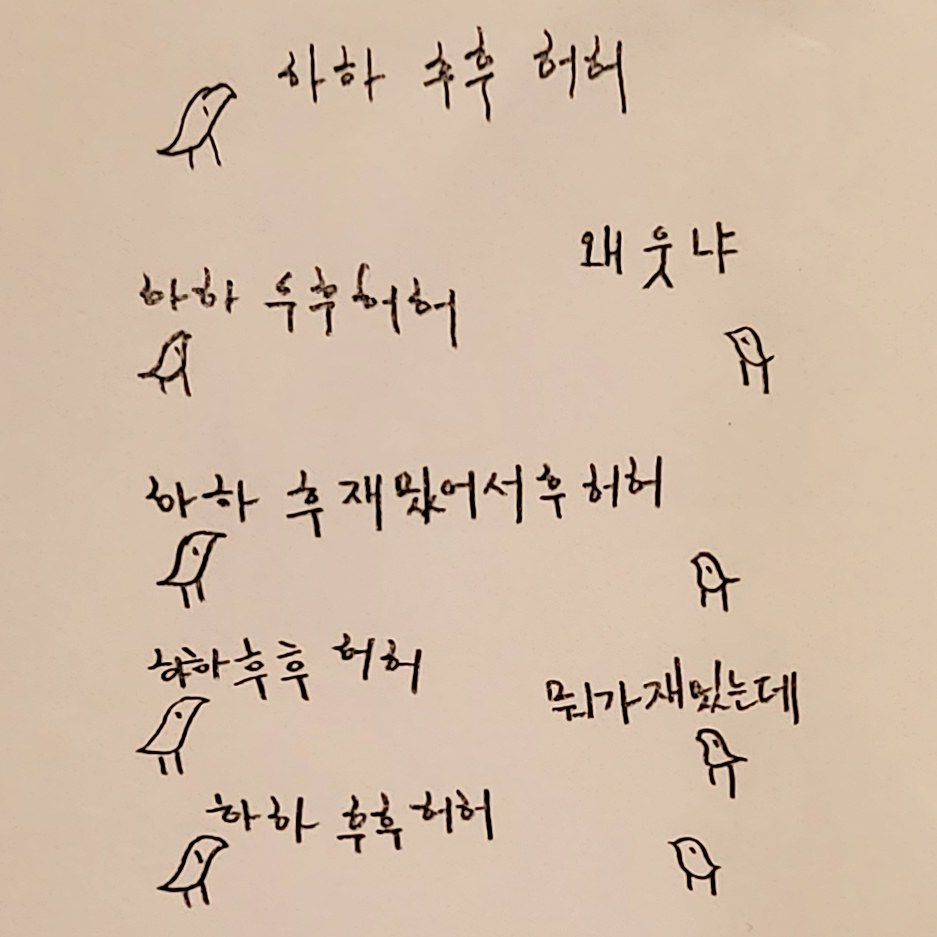 하하 후후 허허
왜 웃냐
하하 후후 허허
하하 후 재밌어서 후 허허
하하 후후 허허
뭐가 재밌는데
하하 후후 허허